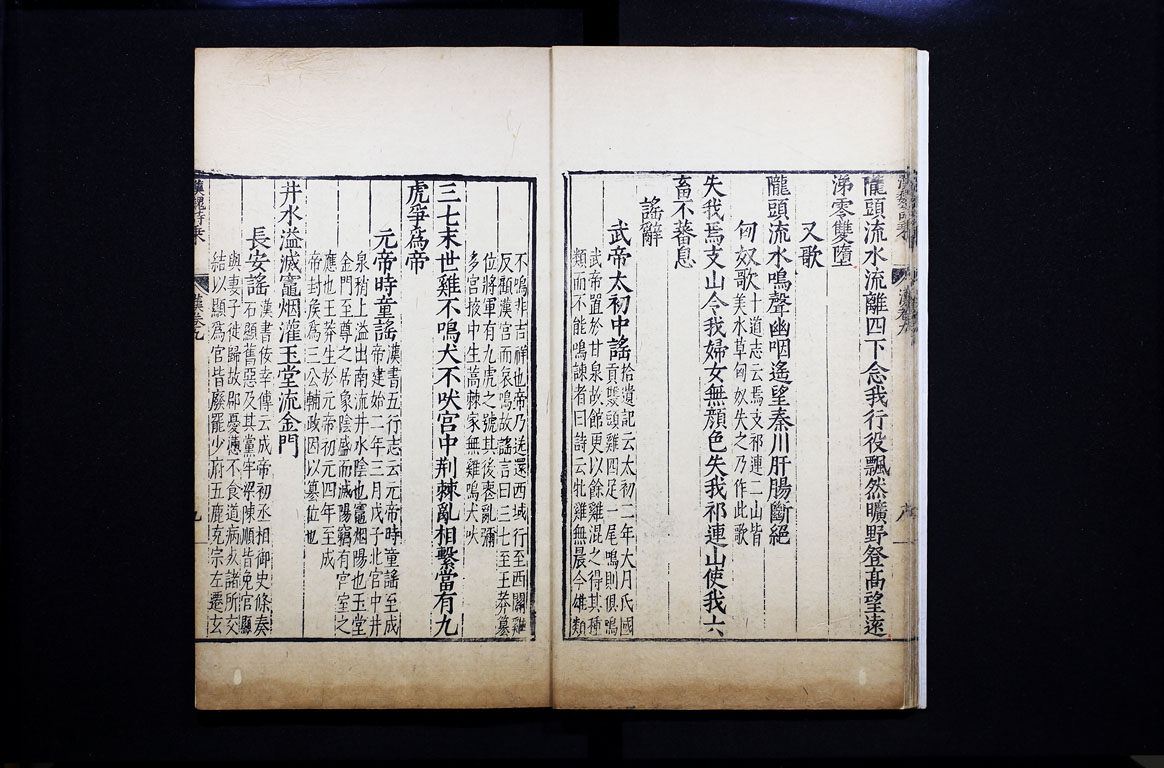 隴頭流水流離四下念我行役飄然曠野登高望遠
涕零雙墮
又歌
隴頭流水鳴聲幽咽遙望秦川肝腸斷絕
匈奴歌
十道志云焉支祁連二山皆
美水草匈奴失之乃作此歌
失我焉支山令我婦女無顏色失我祁連山使我六
畜不蕃息
謠辭
武帝太初中謠
拾遺記云太初二年大月氏國
貢雙頭雞四足一尾鳴則俱鳴
武帝置於甘泉故館更以餘雞混之得其種
類而不能鳴諫者曰詩云牝雞無晨今雄類
不鳴非吉祥也帝乃送還西域行至西關雞
反顧漢宮而哀鳴故謠言曰三七至王莽墓
位將軍有九虎之號其後喪亂彌
多宮掖中生蒿棘家無雞鳴犬吠
三七末世雞不鳴犬不吠宮中荆棘亂相繫當有九
虎爭爲帝
元帝時童謠
漢書五行志云元帝時童謠至成
帝建始二年三月戊子北宮中井
泉稍上溢出南流井水陰也竈烟陽也玉堂
金門至尊之居象陰盛而滅陽竊有宮室之
應也王莽生於元帝初元四年至成
帝封矦爲三公輔政因以墓位也
井水溢滅竈烟灌玉堂流金門
長安謠
漢書佞幸傳云成帝初丞相御史條奏
石顯舊惡及其黨牢梁陳順皆免官顯
與妻子徙歸故郡憂懣不食道病死諸所交
結以顯爲官皆廢罷少府五鹿充宗左遷玄
漢魏詩乘
漢卷九
九